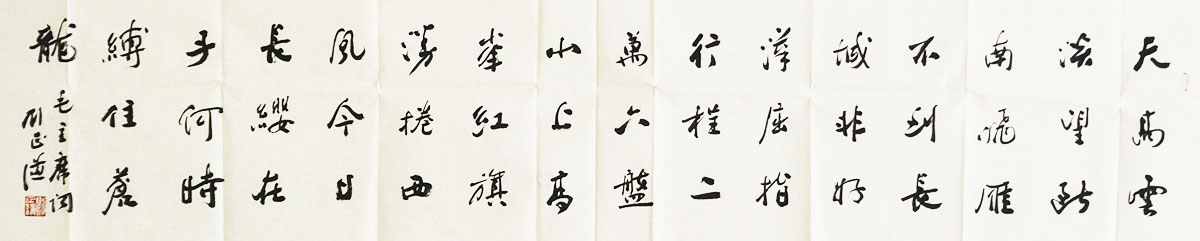 天高雲
淡望断
南飛雁
不到長
城非好
漢屈指
行程二
萬六盤
山上高
峯紅旗
漫捲西
風今日
長纓在
手何時
縛住蒼
龍
毛主席词
刘正谦